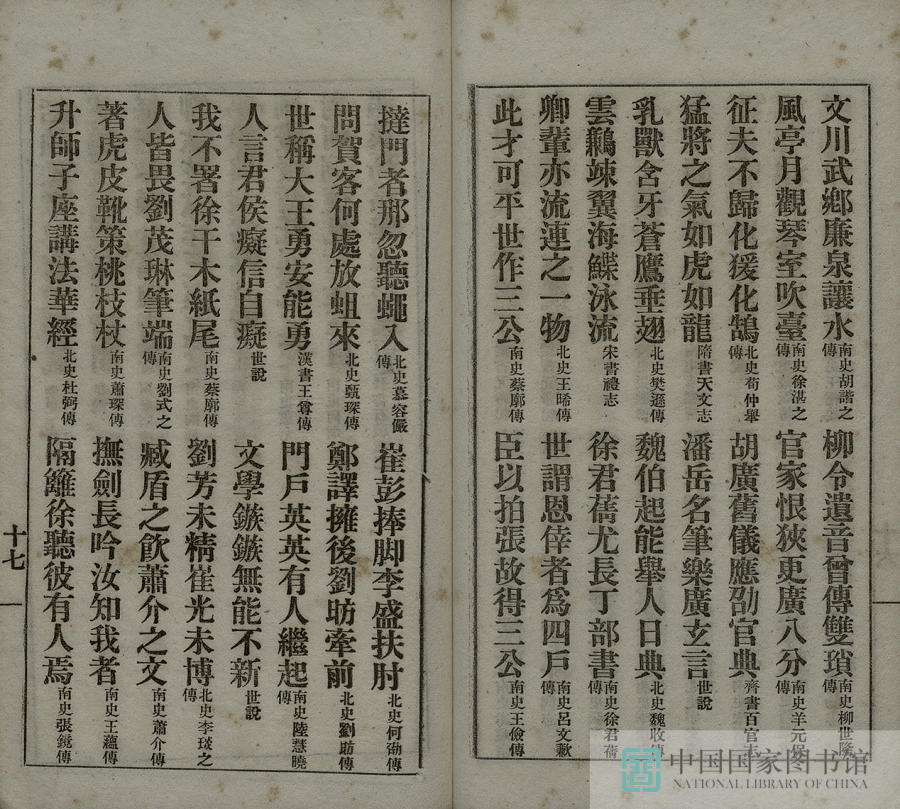 文川武鄉廉泉讓水南史胡諧之傳 柳令遺音曾傳雙瑣南史柳世隆傳
風亭月觀琴室吹臺南史徐湛之傳 官家恨狹更廣八分南史羊元保傳
征夫不歸化猨化鵠北史荀仲舉傳 胡廣舊儀應劭官典齊書百官志
猛將之氣如虎如龍隋書天文志 潘岳名筆樂廣玄言世說
乳獸含牙蒼鷹垂翅北史樊遜傳 魏伯起能舉人日典北史魏收傳
雲鶼竦翼海鰈泳流宋書禮志 徐君蒨尤長丁部書南史徐君蒨傳
卿輩亦流連之一物北史王晞傳 世謂恩倖者爲四戶南史呂文歗傳
此才可平世作三公南史蔡廓傳 臣以拍張故得三公南史王儉傳
撻門者那忽聽蠅入北史慕容儼傳 崔彭捧脚李盛扶肘北史何劭傳
問賀客何處放蛆來北史甄琛傳 鄭譯擁後劉昉牽前北史劉昉傳
世稱大王勇安能勇漢書王尊傳 門戶英英有人繼起南史陸慧曉傳
人言君侯癡信自癡世說 文學鏃鏃無能不新世說
我不署徐干木紙尾南史蔡廓傳 劉芳未精崔光未博北史李琰之傳
人皆畏劉茂琳筆端南史劉式之傳 臧盾之飮蕭介之文南史蕭介傳
著虎皮靴策桃枝杖南史蕭琛傳 撫劍長吟汝知我者南史王蘊傳
升師子座講法華經北史杜弼傳 隔籬徐聽彼有人焉南史張鏡傳
十七
中国国家图书馆
NATIONAL LIBRARY OF CHINA